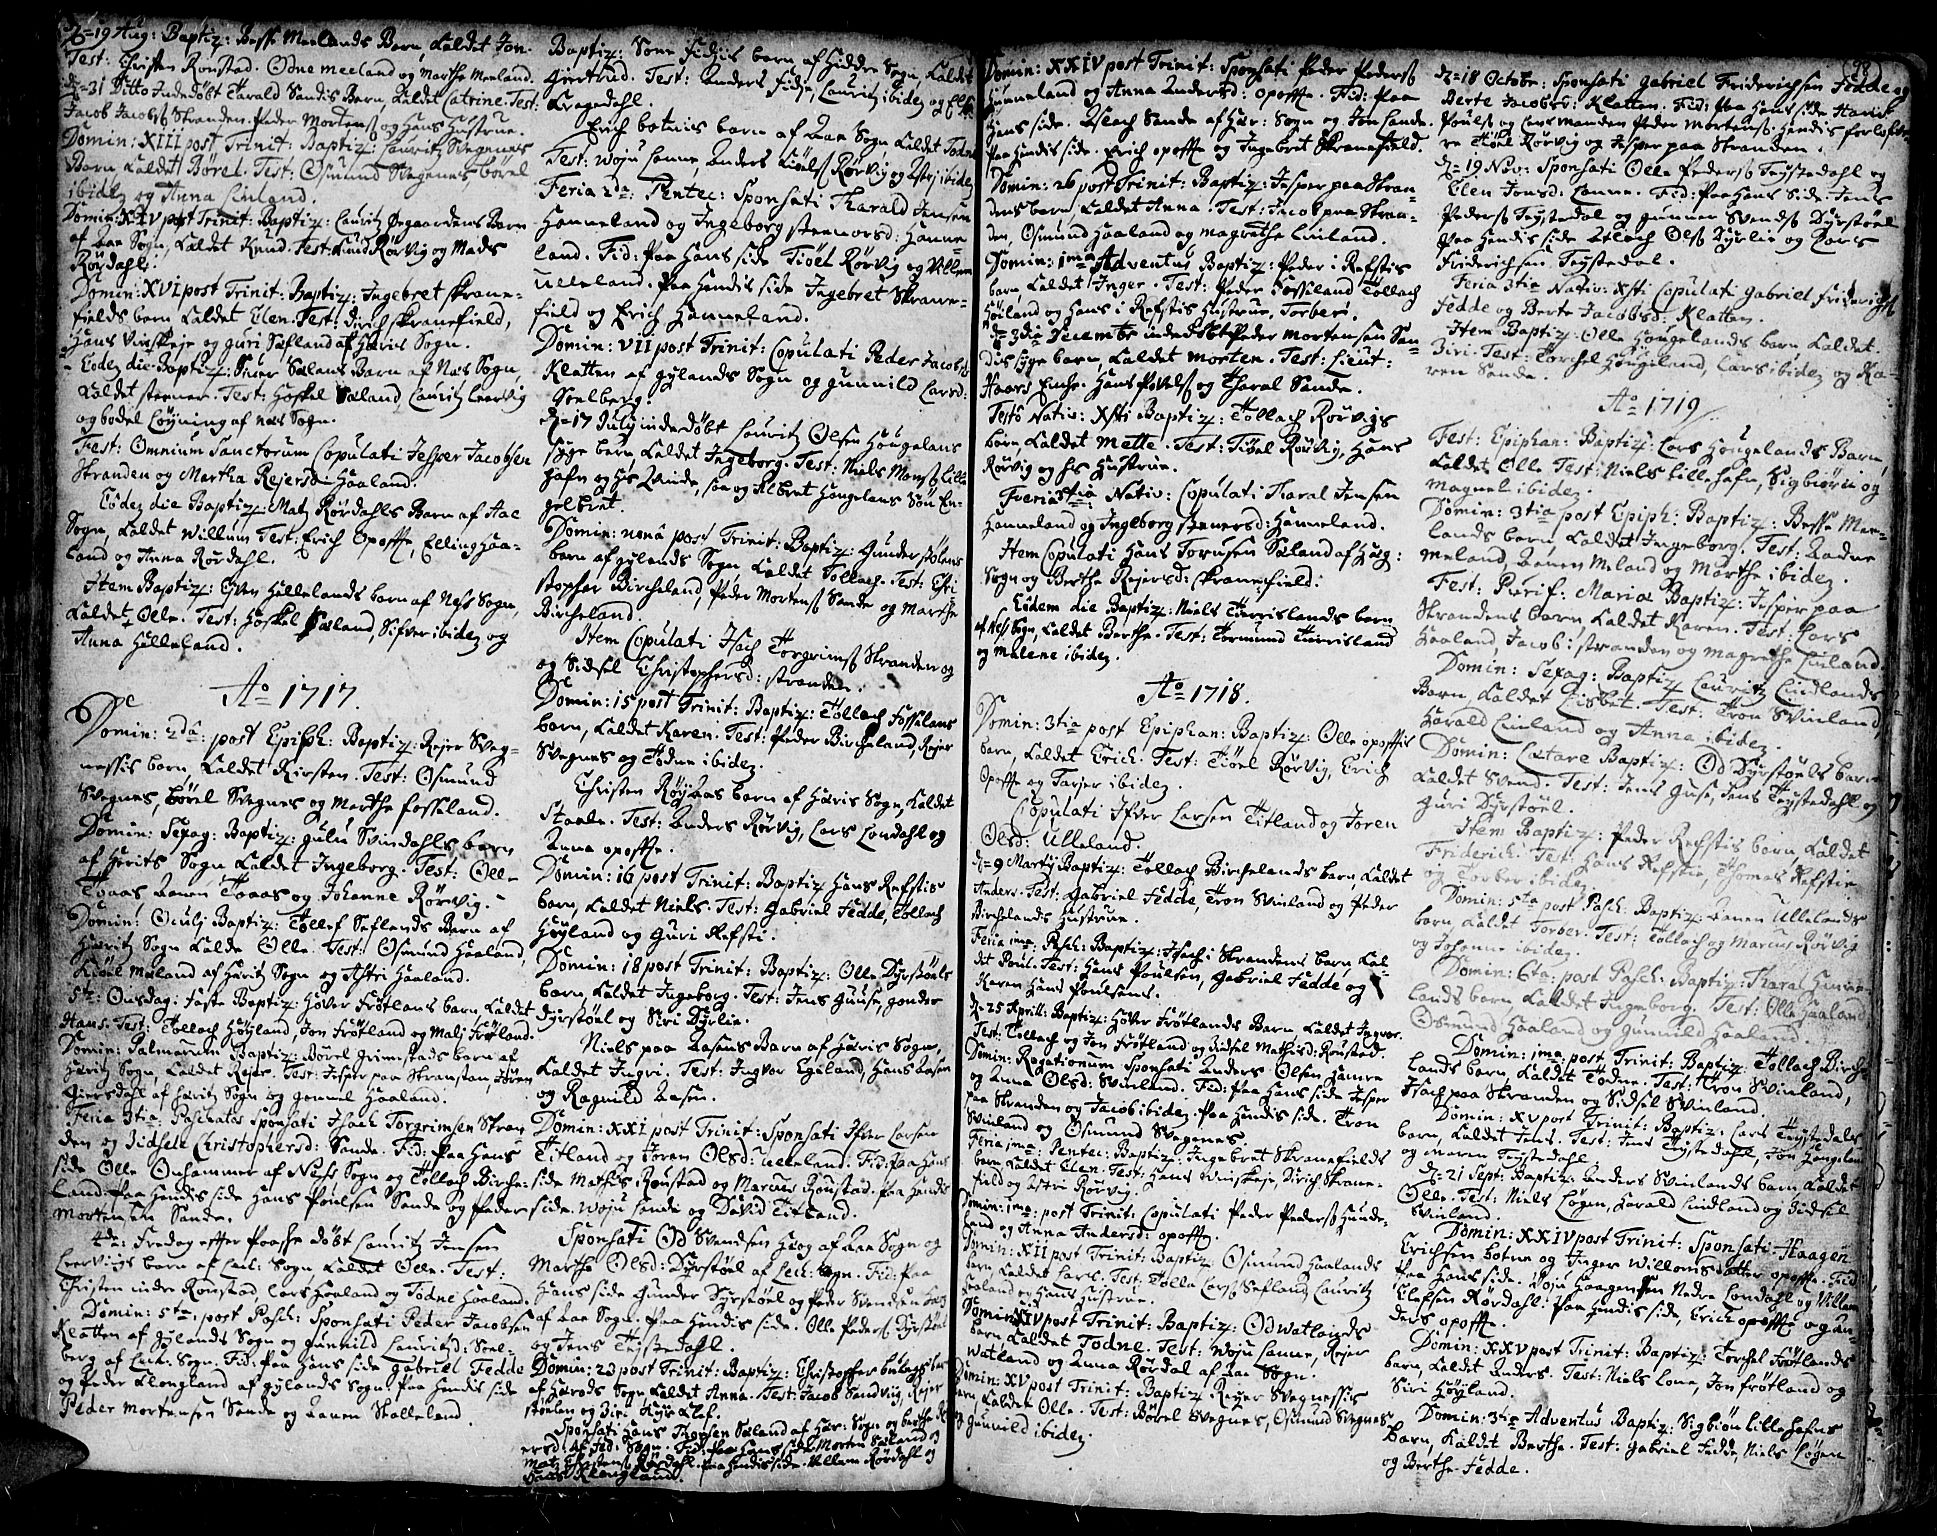 d= 19 Aug: Baptiz: Besse Meelands Barn, kaldet Jon.
Test: Christen Ronstad. Odne meeland og Marthe Meeland.
d= 31 Ditto Inde døbt Harald Sandis Barn, kaldet Catrine. Test:
Jacob Jacobs Stranden. Peder Mortens og Hans Hustrue.
Domin: XIII post Trinit: Baptiz: Lauritz Svegnes
Barn, kaldet Børel. Test: Osmund Svegenes, børel
ibidez og Anna Linland.
Domin: XIV post Trinit: Baptiz: Lauritz Øegaardens Barn
af Aae Sogn, kaldet Knud. Test: Knud Rørvig og Mads
Rørdahl.
Domin: XVI post Trinit: Baptiz: Ingebret skrane-
fields barn kaldet Elen. Test: Dirich skranefield,
Hans Vinskeje og guri Sæfland af Haris Sogn.
Eodez die Baptiz: Siver Sælans Barn af Næs Sogn,
kaldet steener. Test: Hoskel Sæland, Lauritz Leervig
og bodel Løyning af næs Sogn.
Fest: Omnium Sanctorum Copulati Jesper Jacobsen
Stranden og Martha Rejersd: Haaland.
Eodez die Baptiz: Matz Rørdahls Barn af Aae
Sogn, kaldet Willum Test: Erich Opoffte, Elling Haa-
land og Anna Rørdahl.
Item Baptiz: Even Hellelands barn af Ness Sogn,
kaldet Olle. Test: Høskel Sæland, Sifver ibidez og
Anna Helleland.
Ao 1717.
Domin: 2da: post Epiph: Baptiz: Rejer Sveg-
nessis barn, kaldet Kirsten. Test: Osmund
Svegnes, børel Svegnes og Marthe fosseland.
Domin: Sexag: Baptiz: gulu Svindahls barn
af Herits Sogn kaldet Ingeborg. Test: Olle
Toaas, Aanen Toaas og Johanne Rørvig.
Domin: Oculj Baptiz: Tollef Seflands Barn af
Haritz Sogn kalde Olle. Test: Osmund Haaland,
Kiøel Meland af Haritz Sogn og Astri Haaland.
5te: Onsdag: faste Baptiz: Høver Frøtlans barn kaldet
Hans. Test: Tollach Høyland, Jon Frøtland og Malj Frøtland.
Domin: Palmarum Baptiz: Børel Grimestads barn af
Haritz Sogn, kaldet Rejer. Test: Jesper paa Stranden, Søren
Giersdahl af Haritz Sogn og gunnul Haaland.
Feria 3tia Paschatos Sponsati Isach Torgrimsen Stran-
den og Zidsele Christophersd: Sande. Fid: paa Hans
side Olle Onhammer af Nesss Sogn og Tollach Birche-
land. paa Hendis side Hans Poulsen Sande og Peder
Mortensen Sande.
4de: Fredag effter Paasche døbt Lauritz Jensen
Leervigs barn af Lech: Sogn kaldet Olle. Test:
Christen indre Ronstad, Lars Haaland og Todne Haaland.
Domin: 5te: post Pasch: Sponsati Peder Jacobsen
Klatten af gylands Sogn og gunnild Lauritsd: Soel-
berg af Lech: Sogn. Fid: paa Hans side gabriel Fedde
og Peder Klongland af gylands Sogn. paa Hendis side
Peder Mortensen Sande og Aanen Skolleland.
Baptiz: Sone Fidjis barn af Hiddre Sogn, kaldet
Giertrud. Test: Anders Fidje, Lauritz ibidez og Else
Kregedahl.
Erich botnis barn af Aae Sogn kaldet Todne
Test: Woju Lanne, Anders Kiøels Rørvig og Astrj ibidez
Feria 2da: Pentec: Sponsati Tharald Jensen
Hanneland og Ingeborg steenorsd: Hanne-
land. Fid: paa Hans side Tiøel Rørvig og Villum
Ulleland. paa Hendis side Ingebret Skrane-
field og Erich Hanneland.
Domin: VII post Trinit: Copulati Peder Jacobs
Klatten af gylands Sogn og gunnild Larsd:
Soelberg.
d= 17 July inde døbt Lauritz Olsen Hougelans
syge barn, kaldet Ingeborg. Test: Niels Mons Lille
Hafn og Hs Qvinde, saa og Albret Hougelans Søn En-
gelbret.
Domin: nona post Trinit: Baptiz: Gunder Pølans
barn af gylands Sogn kaldet Tollach. Test: Chri
stopher Bircheland, Peder Mortens Sande og Marthe
Bircheland.
Item Copulati Isach Torgrims Stranden og
og Sidsel Christophersd: stranden.
Domin: 15 post Trinit: Baptiz: Tollach Fosselans
barn, kaldet Karen. Test: Peder Bircheland, Rejer
Svegnes og Todne ibidez.
Christen Røylaas barn af Haris Sogn, kaldet
Staale. Test: Anders Rørvig, Lars Londahl og
Anna opoffte.
Domin: 16 post Trinit: Baptiz Hans Refstis
barn, kaldet Niels. Test: Gabriel Fedde, Tollach
Høyland og Guri Refsti.
Domin: 18 post Trinit: Baptiz: Olle Dyrstøels
barn, kaldet Ingeborg. Test: Jens Guuse, gonder
dyrstøel og Siri Dyrlie.
Niels paa Aasens Barn af Haris Sogn,
kaldet Ingri. Test: Ingvor Egeland, Hans Aasen
og Ragnild Aasen.
Domin: XXI post Trinit: Sponsati Ifver Larsen
Titland og Joren Olsd: Ulleland. Fid: paa Hans
side Mathis Ronstad og Marcus Ronstad. paa Hendis
side. Woju Sande og David Titland.
Sponsati Od Svendsen Haog af Aae Sogn og
Marthe Olsd: Dyrstøel af Lech: Sogn. Fid: paa
Hans side Gunder Dyrstøel og Peder Svendsen Haog
af Aae Sogn. paa Hendis side. Olle Peders Dyrstøel
og Jens Tejstedahl.
Domin: 23 post Trinit: Baptiz: Christoffer barn
af Harods Sogn kaldet Anna. Test: Jacob Sandvig, Rejer
støelen og Ziri
Sponsati Hans Thorsen Sæland af Har: Sogn og berthe Rej
ersd: af Fed: Sogn. Fid: paa Hans side Morten Sæland og
Matz Christens Rørdahl. paa Hendis side. Vellem Rørdahl og
Hans Klongland.
Domin: XXIV post Trinit: Sponsati Peder Peders
Hunneland og Anna Andersd: opoffte. Fid: paa
Hans side. Aslach Sande af Har: Sogn og Jon Sande.
paa Hendis side. Erich opoffte og Ingebret Skranefield.
Domin: 26 post Trinit: Baptiz: Jesper paa Stran-
dens barn, kaldet Anna. Test: Jacob paa Stran-
den, Osmund Haaland og Magrethe Linland.
Domin: 1ma Adventus Baptiz: Peder i Refstis
barn, kaldet Inger. Test: Peder Fosseland Tollach
Høiland og Hans i Refstis Hustrue, Torber.
d= 3die Decembr inde døbt Peder Mortensen San-
dis syge barn, kaldet Morten. Test: Lieut:
Haars Enche. Hans Povels og Tharal Sande.
Festo Nativ: Xsti Baptiz: Tollach Rørvigs
barn, kaldet Mette. Test: Tiøel Rørvig, Hans
Rørvig og hs Hustrue.
Feria 3tia Nativ: Copulati Tharal Jensen
Hanneland og Ingeborg steenersd: Hanneland.
Item Copulati Hans Torusen Sæland af Har:
Sogn og Berthe Rejersd: Skranefield:
Eodem die Baptiz: Niels Tierislands barn
af Nes Sogn, kaldet Berthe. Test: Tormund Tierrisland
og Malene ibidez.
Ao 1718.
Domin: 3tia post Epiphan: Baptiz: Olle opofftis
barn, kaldet Erich. Test: Tiøel Rørvig, Erich
Opoffte og Tarjer ibidez.
Copulati Ifver Larsen Titland og Joren
Olsd: Ulleland.
d= 9 Martij Baptiz: Tollach Birchelands barn, kaldet
Anders. Test: Gabriel Fedde, Tron Svinland og Peder
Birchelands Hustrue.
Feria 1ma: Pasch: Baptiz: Isach i Strandens barn, kal-
det Poul. Test: Hans Poulsen, Gabriel Fedde og
Karen Hans Poulsens.
d= 25 Aprill: Baptiz: Høver Frøtlands Barn kaldet Ingvor.
Test: Tollach og Jon Frøtland og Zidsel Mathisd: Ronstad.
Domin: Rogationum Sponsati Anders Olsen Hamre
og Anna Olsd: Svinland. Fid: paa Hans side Jesper
paa Stranden og Jacob ibidez. paa Hendis side. Tron
Svinland og Osmund Svegenes.
Feria 1ma: Pentec: Baptiz: Ingebret Skranefields
barn, kaldet Elen. Test: Hans Winskeje, Dirich Skrane-
field og Astri Rørvig.
Domin: 1ma: post Trinit: Copulati Peder Peders Hunde-
land og Anna Andersd: opoffte.
Domin: XII post Trinit: Baptiz: Osmund Haalands
barn kaldet Lars. Test: Tolle Lars Sefland, Lauritz
Haaland og Hans Hustrue.
Domin: XIV post Trinit: Baptiz: Od Watlands
barn kaldet Todne. Test: Woju Lanne, Rejer
Watland og Anna Rørdal af Aae Sogn.
Domin: XV post Trinit: Baptiz Rejer Svegnessis
barn, kaldet Olle. Test: Børel Svegnes, Osmund Svegnes
og gunnild ibidez.
98
d= 18 October: Sponsati Gabriel Friderichsen Fedde og
Berte Jacobsd: Klatten. Fid: paa Hans side Hans
Pouls og Lens Manden Peder Mortens. Hendis forlofve-
re Tiøel Rørvig og Jesper paa Stranden.
d= 19 Nov: Sponsati Olle Peders Tejstedahl og
Elen Jensd: Lanne. Fid: paa Hans Side. Jens
Peders Tejstedal og gunner Svends Dyrstøel
paa Hendis side Aslach Ols Dyrlie og Lars
Friderichsen Tejstedal.
Feria 3tia Nativ: Xsti Copulati Gabriel Friderichs
Fedde og Berte Jacobsd: Klatten.
Item Baptiz: Olle Hougelands barn kaldet
Ziri. Test: Torchel Hougeland, Lars ibidez og Ka-
ren Sande.
Ao 1719
Fest: Epiphan: Baptiz: Lars Hougelands Barn
kaldet Olle Test: Niels Lillehafn, Sigbiørn og
Magnel ibidez.
Domin: 3tia post Epiph: Baptiz: Besse Mee-
lands barn kaldet Ingeborg. Test: Aadne
Meeland, Aanen Meland og Marthe ibidez.
Fest: Purif: Mariæ Baptiz: Jesper paa
Strandens barn, kaldet Karen. Test: Lars
Haaland, Jacob: stranden og Magrethe Linland.
Domin: Sexag: Baptiz: Lauritz Lindlands
Barn, kaldet Lisbet. Test: Tron Svinland,
Harald Linland og Anna ibidez.
Domin: Lætare Baptiz: Od Dyrstøels barn
kaldet Svend. Test: Jens Guse, Jens Tejstedahl og
Guri Dyrstøel.
Item Baptiz: Peder Refstis barn, kaldet
Friderich. Test: Hans Refstie, Thomas Refstie
og Torber ibidez.
Domin: 5ta post Pasch: Baptiz: Aanen Ullelands
barn, kaldet Torber. Test: Tollach og Marcus Rørvig
og Johanne ibidez.
Domin: 6ta: post Pasch: Baptiz: Tharal Hanne-
lands barn, kaldet Ingeborg. Test: Olle Haaland,
Osmund Haaland og Gunnild Haaland.
Domin: 1ma: post Trinit: Baptiz: Tollach Birche
lands barn, kaldet Todne. Test: Tron Svinland,
Isach paa Stranden og Sidsel Svinland.
Domin: XV post Trinit: Baptiz: Lars Tejstedals
barn, kaldet Jens. Test: Jens Tejstedahl, Jon Hougeland
og Maren Tejstedahl.
d= 21 Sept: Baptiz: Anders Svinlands barn kaldet
Olle. Test: Niels Løgen, Harald Lindland og Zidsel
Svinland.
Domin: XXIV post Trinit: Sponsati Haagen
Erichsen botne og Inger Willomsdatter opoffte. Fid:
paa Hans side. Woju Haagensen Nedre Londahl og Villum
Elefsen Rørdahl. paa Hendis side, Erich opoffte og An-
ders opoffte.
Domin: XXV post Trinit: Baptiz: Torchel Frøtlands
barn, kaldet Anders. Test: Niels Lone, Jon frøtland og
Siri Høyland.
Domin: 3tia Adventus Baptiz: Sigbiøn Lillehafns
barn, kaldet Berthe. Test: Gabriel Fedde, Niels Løgen
og Berthe Fedde.